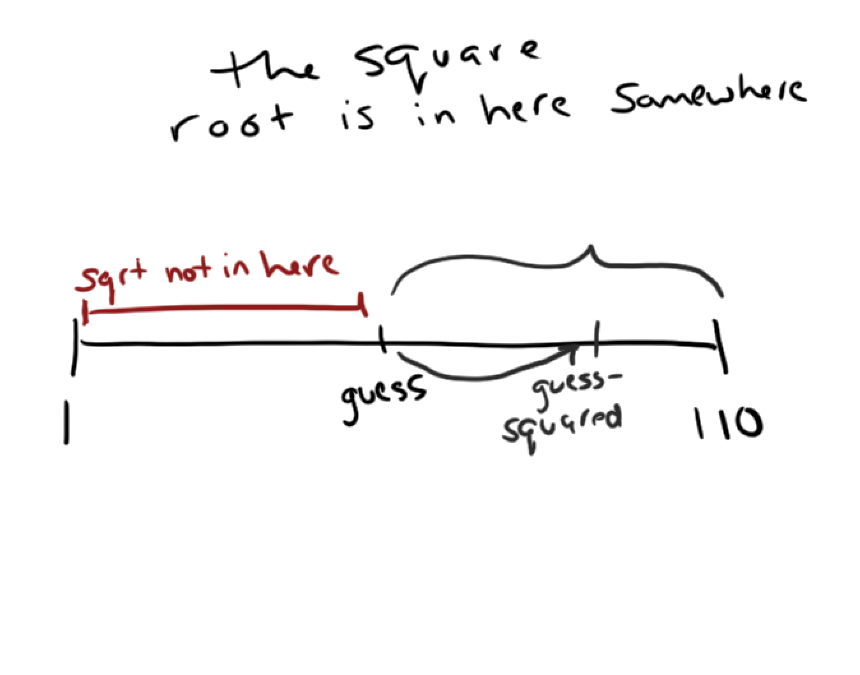 the square
root is in here somewhere
sqrt not in here
guess
guess-
squared
1
110